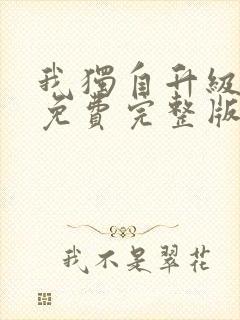 我獨自升級
免費完整版
我不是翠花